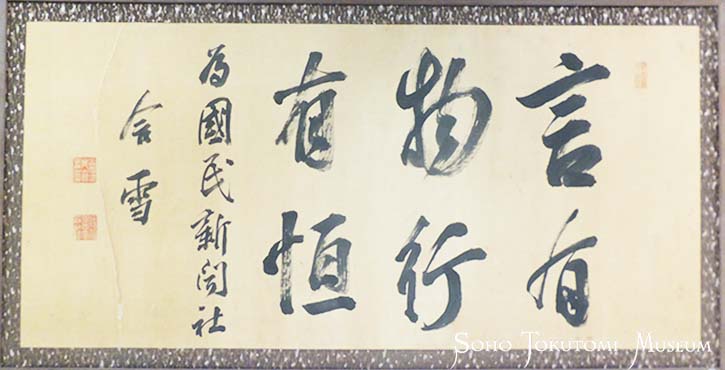 言有
物行
有恒
為國民新聞社
含雪
Soho Tokutomi Museum